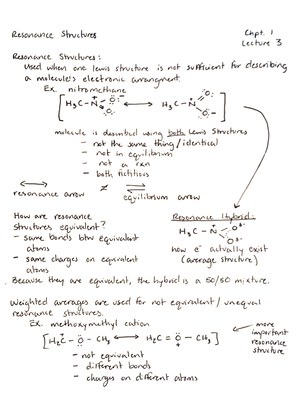 Resonance Structures
Chpt. 1
Lecture 3
Resonance Structures:
Used when one lewis structure is not sufficient for describing
a molecule's electronic arrangment.
Ex. nitromethane
[H₃C-N⁺ O: O:⁻ ⟷ H₃C-N⁺ O:⁻ O:]
molecule is described using both Lewis Structures
- not the same thing/identical
- not in equilibrium
- not a rxn
- both fictitious
⟷ ≠ ⇌
resonance arrow
equilibrium arrow
How are resonance
structures equivalent?
- same bonds btw equivalent
atoms
- same charges on equivalent
atoms
Resonance Hybrid:
H₃C-N⁺ O: O:
how e⁻ actually exist
(average structure)
Because they are equivalent, the hybrid is a 50/50 mixture.
Weighted averages are used for not equivalent/unequal
resonance structures.
Ex. methoxymethyl cation
[H₂C⁺-O-CH₃ ⟷ H₂C=O⁺-CH₃]
more
important
resonance
structure
- not equivalent
- different bonds
- charges on different atoms